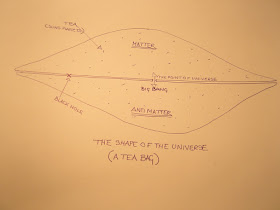 TEA
MATTER
THE POINT OF UNIVERSE
BIG BANG
BLACK HOLE
ANTI MATTER
THE SHAPE OF THE UNIVERSE
(A TEA BAG)